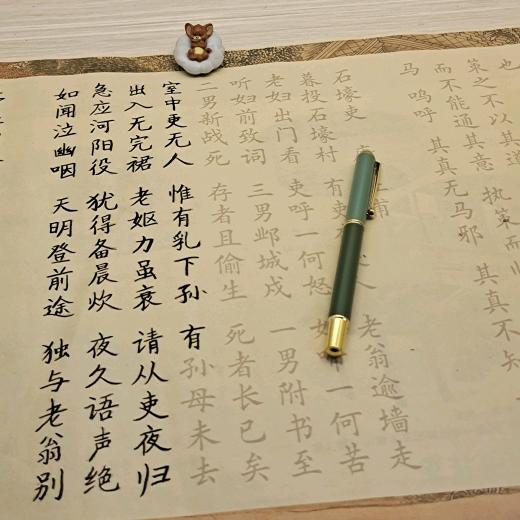 也
策之不以其道
而不能通其意 执策而
马 呜呼 其真无马邪 其真不知
石壕吏 甫
暮投石壕村 有吏 人 老翁逾墙走
老妇出门看 吏呼一何怒 一何苦
听妇前致词 三男邺城戍 一男附书至
二男新战死 存者且偷生 死者长已矣
室中更无人 惟有乳下孙 有孙母未去
出入无完裙 老妪力虽衰 请从吏夜归
急应河阳役 犹得备晨炊 夜久语声绝
如闻泣幽咽 天明登前途 独与老翁别